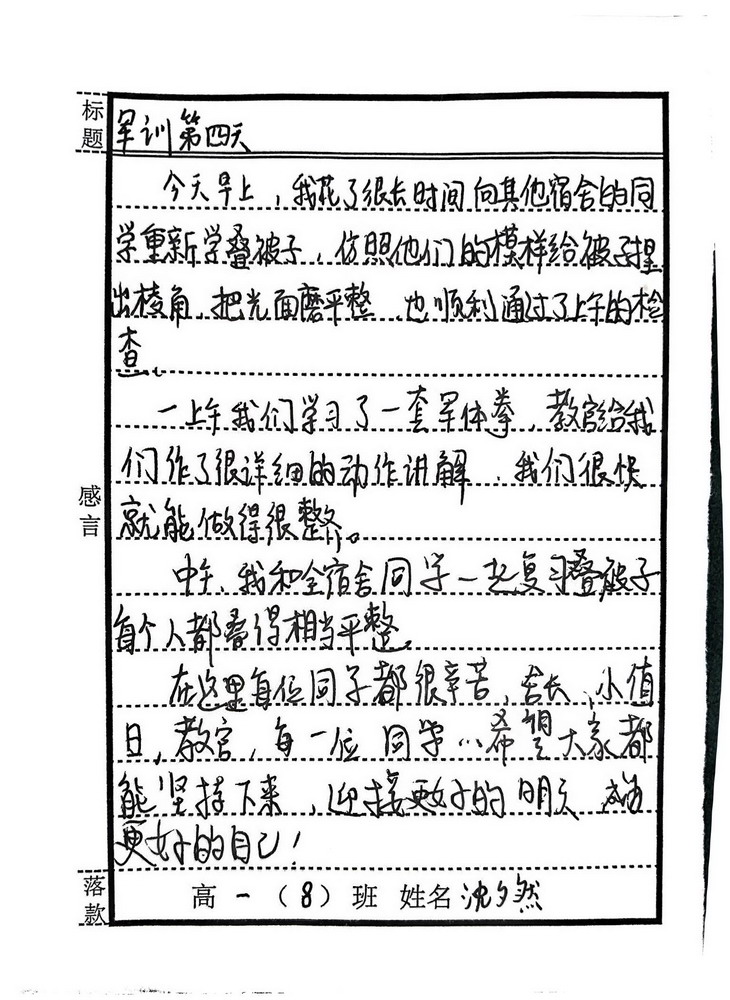 标题
军训第四天
今天早上，我花了很长时间向其他宿舍的同
学重新学叠被子，仿照他们的模样给被子捏
出棱角，把光面磨平整，也顺利通过了上午的检
查。
一上午我们学习了一套军体拳，教官给我
们作了很详细的动作讲解，我们很快
就能做得很整齐。
中午，我和全宿舍同学一起复习叠被子
每个人都叠得相当平整。
感言
在这里每位同学都很辛苦，舍长，小值
日，教官，每一位同学……希望大家都
能坚持下来，迎接更好的明天，成为
更好的自己！
落款
高一（8）班 姓名 沈夕然